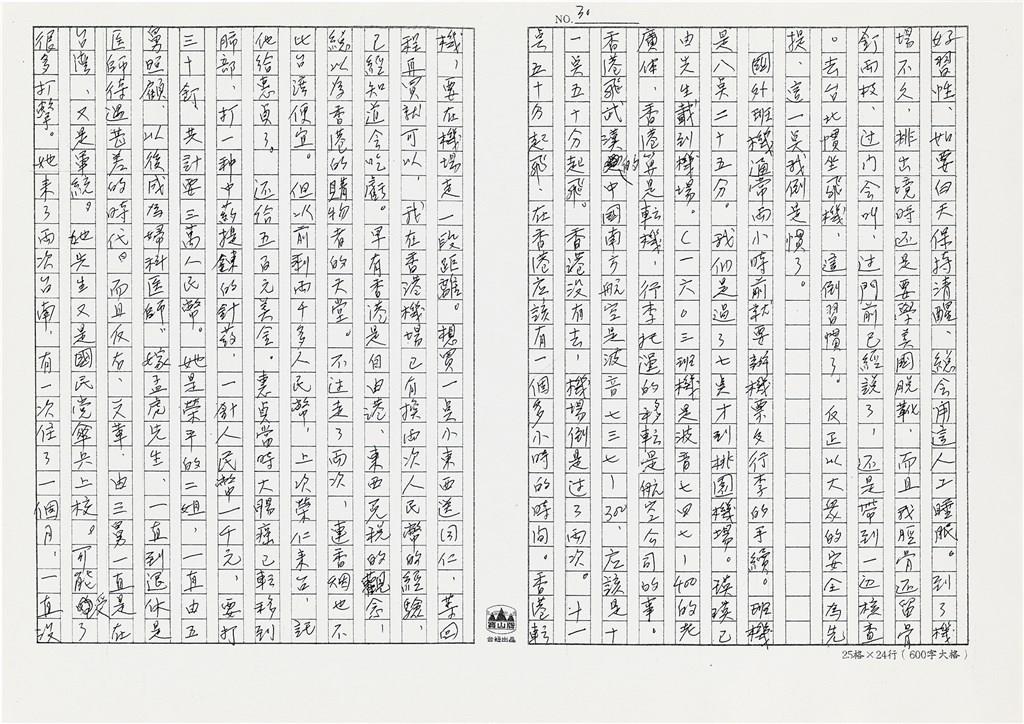 NO. 30
好習性、如要白天保持清醒、總會用這人工睡眠。到了機
場不久，排出境時还是要學美國脫靴，而且我脛骨还留骨
釘两枝，过门会叫，过門前已經説了，还是帶到一边核查
。去台北慣坐飛機，這倒習慣了。反正以大众的安全為先
提，這一點我倒是慣了。
國外班機通常兩小時前就要辦機票及行李的手續。班機
是八點二十五分。我們是過了七點才到桃園機場。瑛瑛已
由先生載到機場。（一六0三班機是波音七四七－400的老
廣体，香港算是転機，行李托運的移転是航空公司的事。
香港飛武漢的中國南方航空是波音七三七－300，应該是十
一點五十分起飛。香港没有去，機場倒是过了兩次。十一
點五十分起飛！在香港应該有一個多小時的時间。香港転
機，要在機場走一段距離。想買一點小東西送(3)仁，等回
程再買就可以，我在香港機場已有換两次人民幣的經驗，
已經知道会吃虧。早有香港是自由港、東西免稅的觀念，
総以为香港的購物者的天堂。不过走了两次，連香烟也不
比台湾便宜。但以前剩两千多人民幣，上次榮仁来台，託
他給惠貞了。还给五百元美金。惠貞當時大腸癌已転移到
肺部，打一种中葯提鍊的針葯，一針人民幣一千元，要打
三十釘，共計要三萬人民幣。她是榮平的二姐，一直由五
舅照顧，以後成為婦科医師，嫁孟虎先生，一直到退休是
医師待遇甚差的時代。而且反右、文革，由三舅一直是在
台湾，又是軍統。她先生又是國民党傘兵上校。可能受了
很多打擊。她来了两次台南，有一次住了一個月，一直没
寶山牌
台紙出品
25格×24行（600字大格）